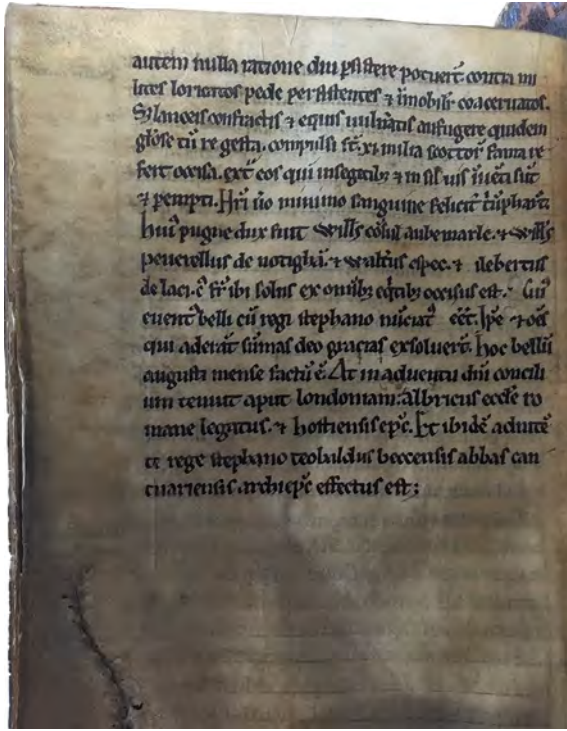 autem nulla ratione diu p̄sistere potuer̄t contra mi
lites loricatos pede persistentes ⁊ īmobilit̄ coaceruatos.
Sꝫ lanceis confractis ⁊ equis uuln̄atis aufugere quidem
glōse tū re gesta. compulsi st̄. xi. milia scottor̄ fama re
fert occisa. ext̄ eos qui in segetibꝫ ⁊ in siluis īuēti sūt
⁊ pempti. Hr̄i ū̄o minimo sanguine felicit̄ tⁱūpharūt
huiꝰ pugne dux fuit Will̄s cōsul aubemarle. ⁊ Will̄s
peuerellus de notighā. ⁊ Walt̄us espec. ⁊ ilebertus
de laci. cꝰ fr̄ ibi solus ex omībꝫ eq̄tibꝫ occisus est. Cūꝰ
euentꝰ belli cū regi stephano nūciatꝰ eēt. Ip̄e ⁊ oēs
qui aderāt sūmas deo gracias exsoluer̄t. hoc bellū
augusti mense factū ē. At in aduentu dn̄i concili
um tenuit aput londoniam: Albricus eccl̄e ro
mane legatus. ⁊ hostiensis ep̄c. Et ibidē adnitē
te rege stephano teobaldus beccensis abbas can
tuariensis archiep̄c effectus est;